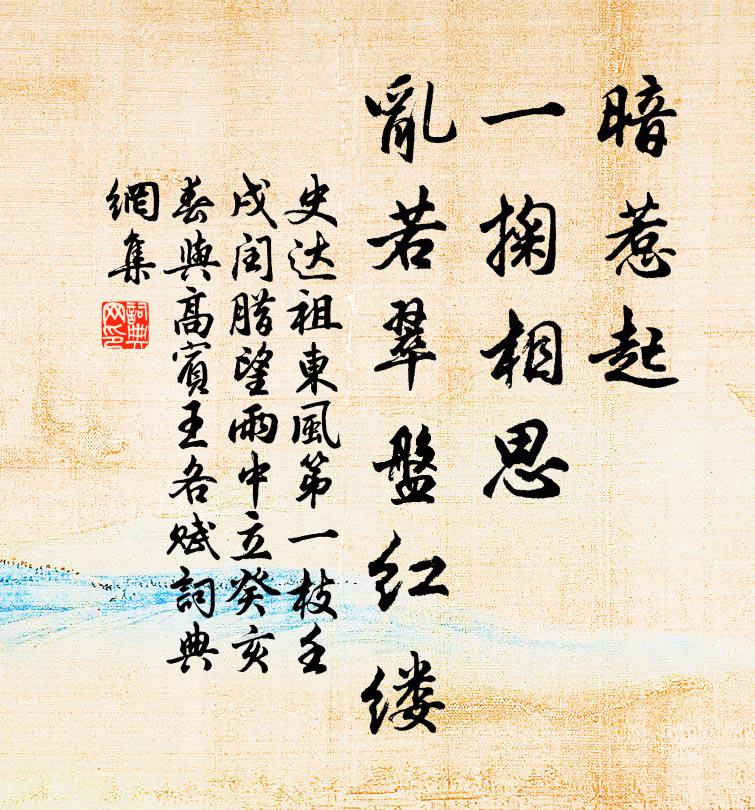 暗惹起
一掬相思
亂若翠盤紅缕
史达祖東風第一枝壬
戌闰腊望雨中立癸亥
春與高賓王各赋詞典
網集
詞典網印